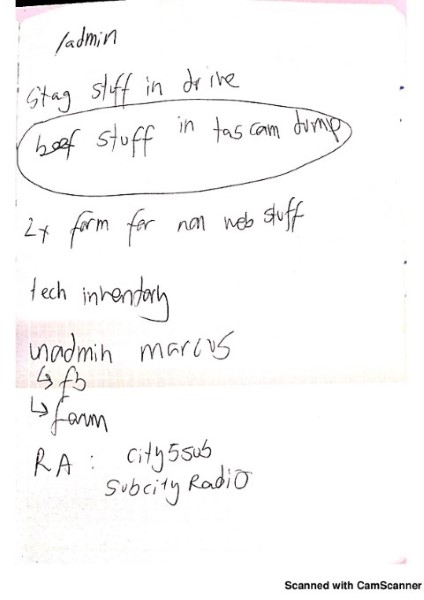 /admin
stag stuff in drive
beef stuff in tascam dump
2x form for non web stuff
tech inventory
unadmin marcus
↳ fb
↳ farm
RA : city5sub
subcity Radio
Scanned with CamScanner